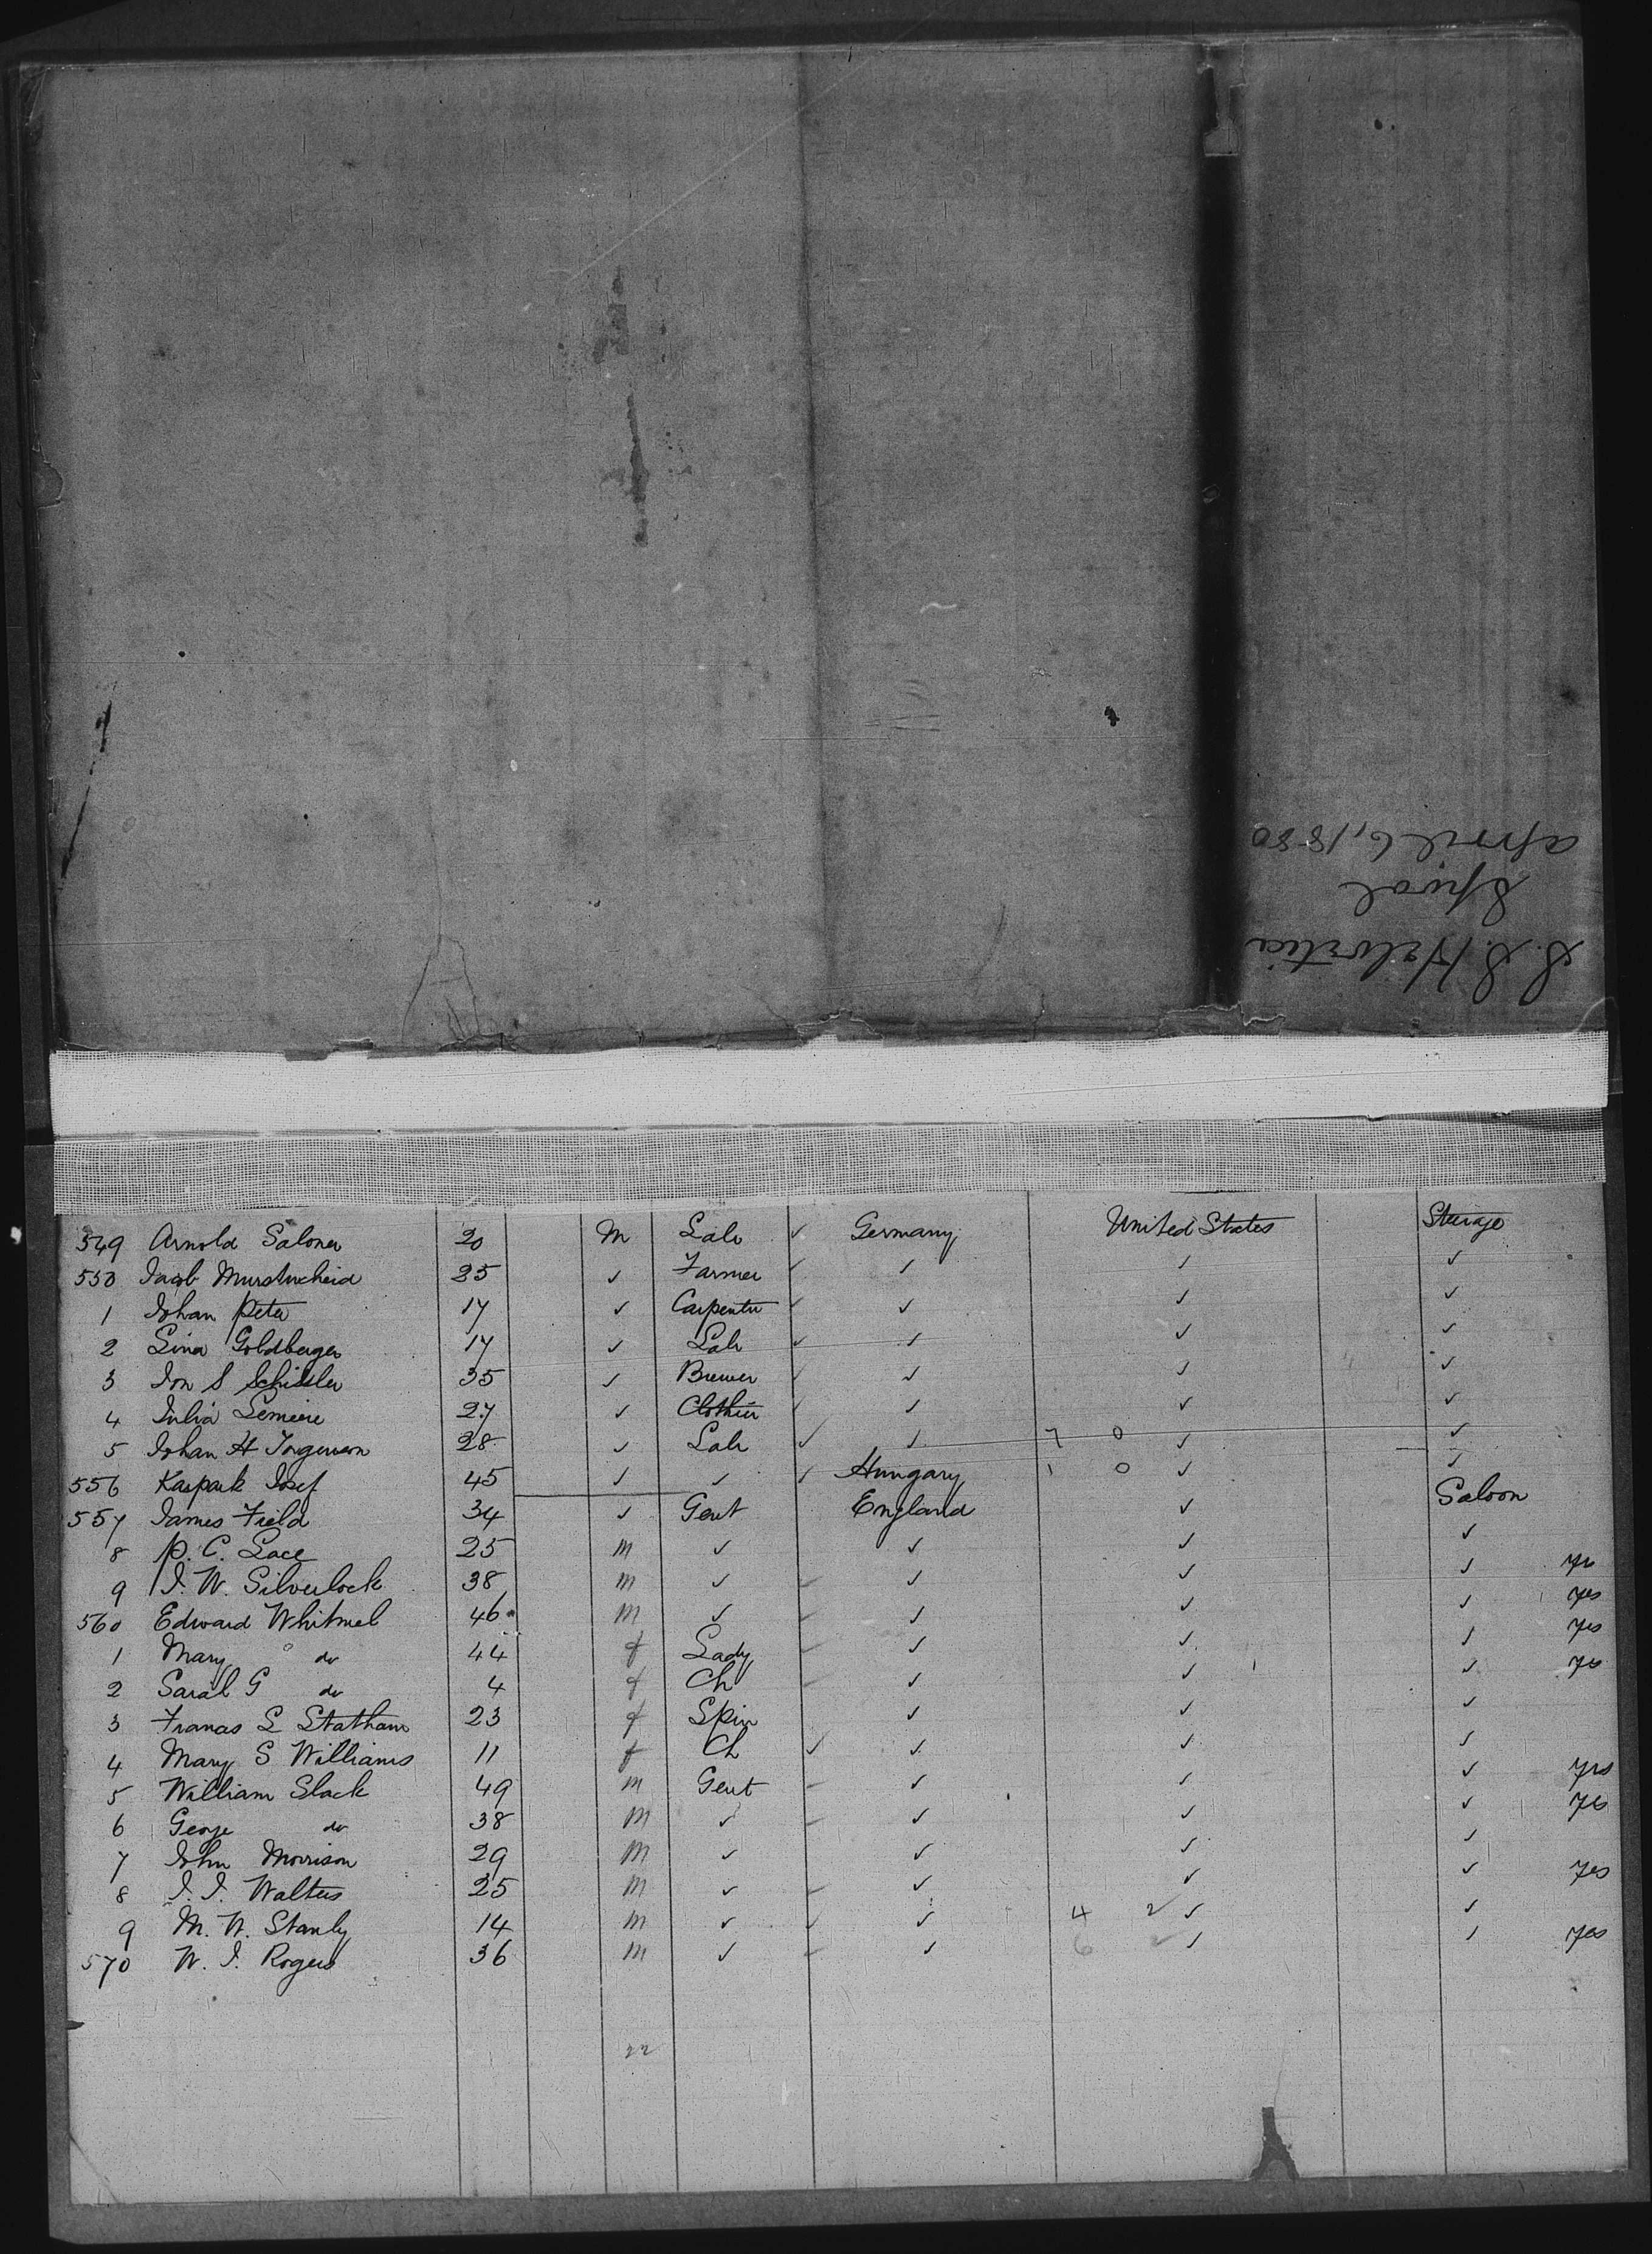 S. S. Helvetia
Lpool
April 6, 1880
549 Arnold Saloner 20 M Lab ✓ Germany United States Steerage
550 Jacob 25 ✓ Farmer ✓ ✓ ✓ ✓
1 Johan Peter 17 ✓ Carpenter ✓ ✓ ✓ ✓
2 Lina Goldberger 17 ✓ Lab ✓ ✓ ✓ ✓
3 Jon S Schissler 35 ✓ Brewer ✓ ✓ ✓ ✓
4 Julia Lemiere 27 ✓ Clothier ✓ ✓ ✓ ✓
5 Johan H Jorgenson 28 ✓ Lab ✓ ✓ 7 0 ✓ ✓
556 Kaspark Josef 45 ✓ ✓ ✓ Hungary 1 0 ✓ ✓
557 James Field 34 ✓ Gent England ✓ Saloon
8 P. C. Lace 25 M ✓ ✓ ✓ ✓
9 J. W. Silverlock 38 M ✓ ✓ ✓ ✓ ✓ yes
560 Edward Whitmel 46 M ✓ ✓ ✓ ✓ ✓ yes
1 Mary do 44 f Lady ✓ ✓ ✓ ✓ yes
2 Sarah G do 4 f Ch ✓ ✓ ✓ ✓ yes
3 Frances L Statham 23 f Spin ✓ ✓ ✓
4 Mary S Williams 11 f Ch ✓ ✓ ✓ ✓
5 William Slack 49 M Gent ✓ ✓ ✓ ✓ yes
6 George do 38 M ✓ ✓ ✓ ✓ ✓ yes
7 John Morrison 29 M ✓ ✓ ✓ ✓
8 J. J. Walters 25 M ✓ ✓ ✓ ✓ ✓ yes
9 M. W. Stanly 14 M ✓ ✓ ✓ 4 2 ✓ ✓
570 W. J. Rogers 36 M ✓ ✓ ✓ 6 ✓ ✓ ✓ yes
22